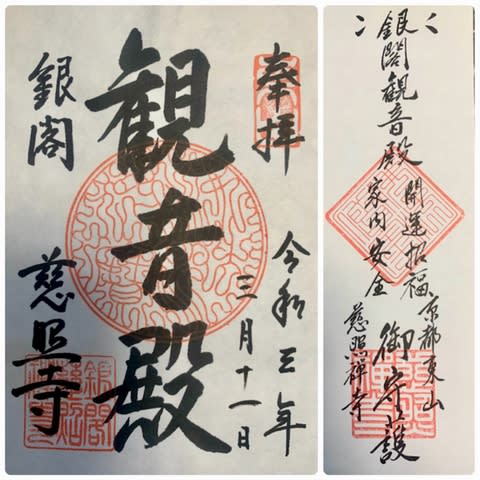 奉拝
令和三年
三月十一日
観音殿
銀閣
慈照寺
京都東山
慈照禅寺
銀閣観音殿
開運招福
家内安全
御守護